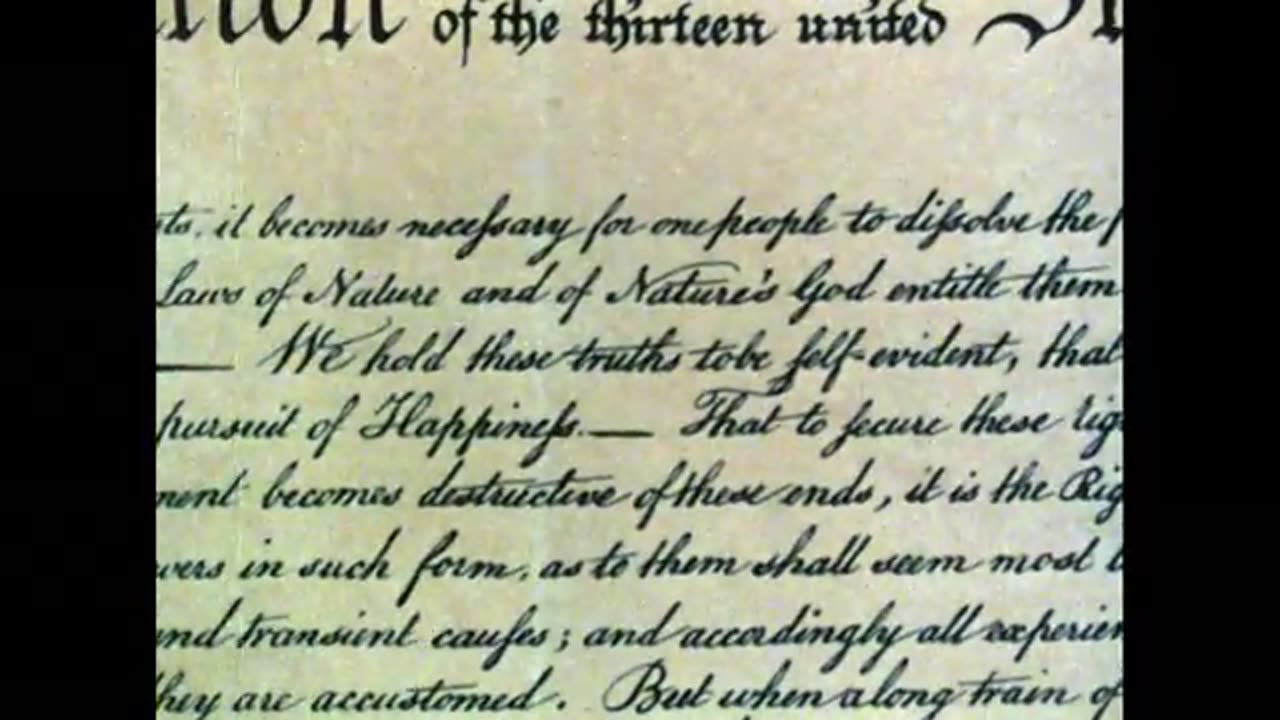 of the thirteen united
it becomes neceſsary for one people to diſsolve the
Laws of Nature and of Nature's God entitle them
— We hold these truths to be ſelf-evident, that
pursuit of Happineſs. — That to ſecure these
becomes destructive of these ends, it is the
in such form, as to them shall seem most
transient cauſes; and accordingly all
they are accustomed. But when a long train of